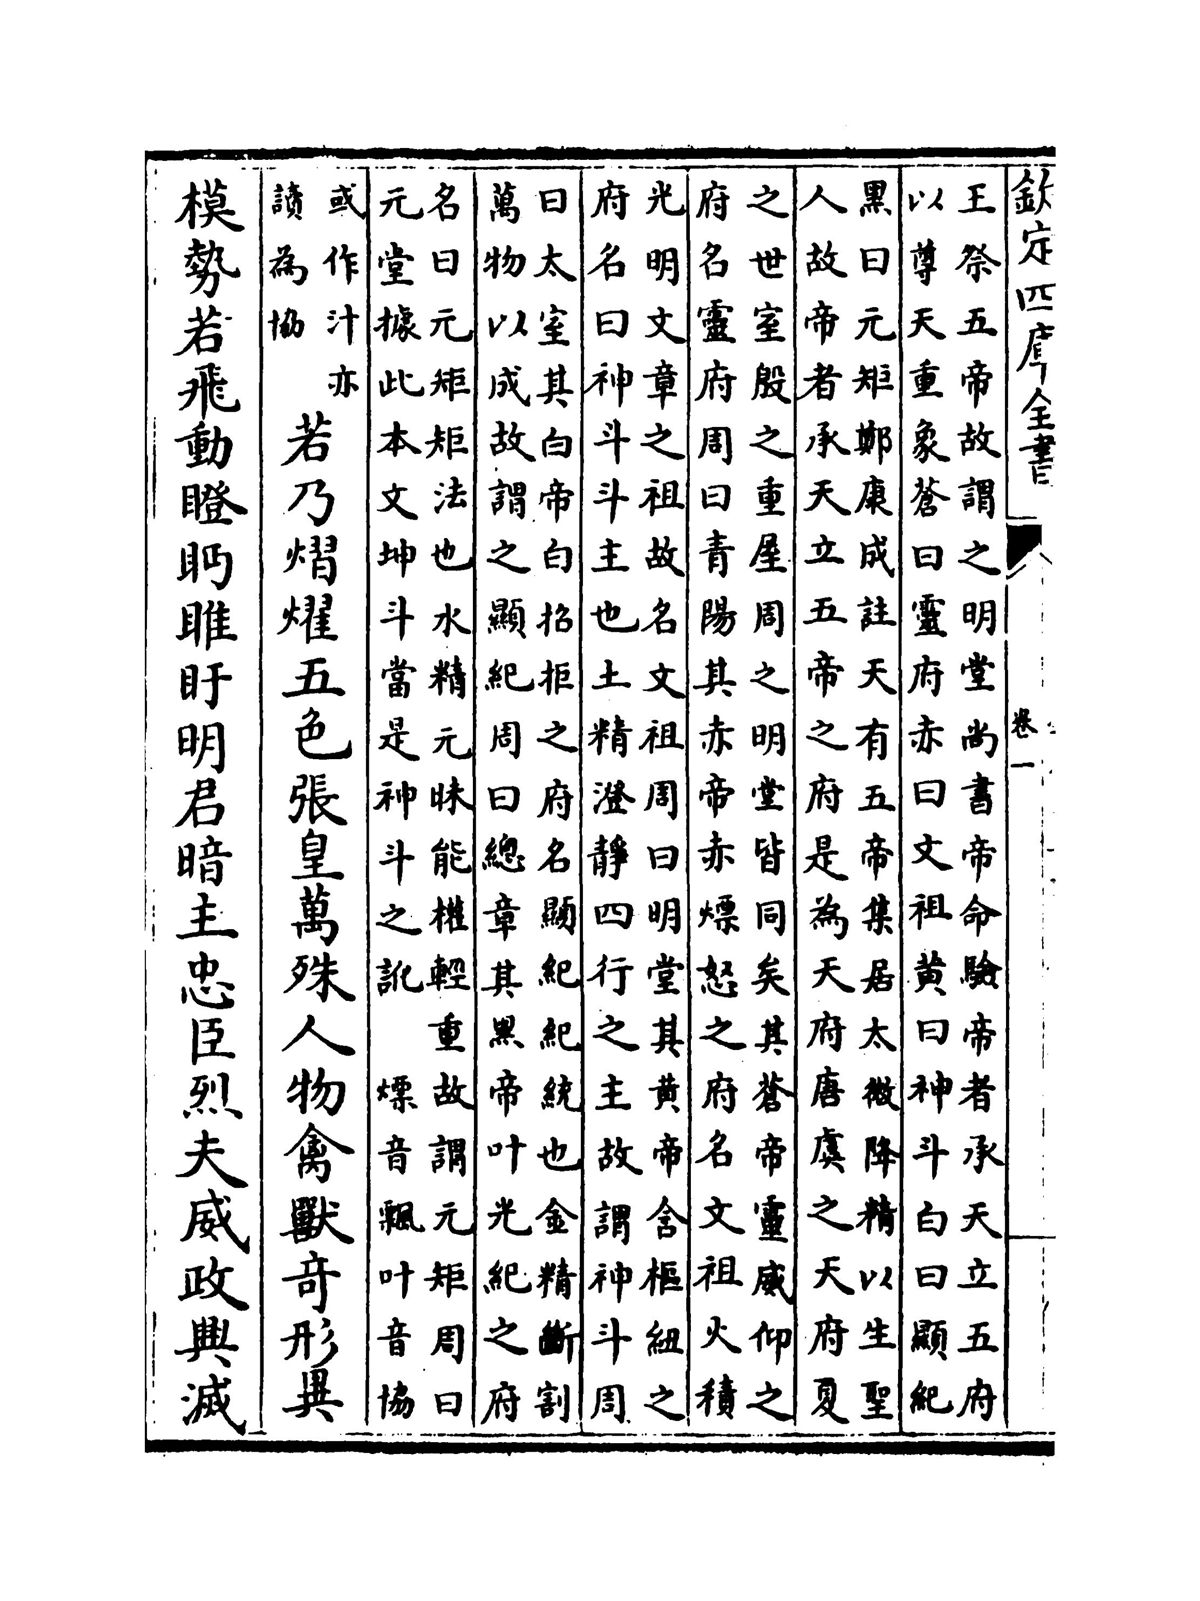 欽定四庫全書
卷一
王祭五帝故謂之明堂尚書帝命驗帝者承天立五府
以尊天重象蒼曰靈府赤曰文祖黄曰神斗白曰顯紀
黑曰元矩鄭康成註天有五帝集居太微降精以生聖
人故帝者承天立五帝之府是為天府唐虞之天府夏
之世室殷之重屋周之明堂皆同矣其蒼帝靈威仰之
府名靈府周曰青陽其赤帝赤熛怒之府名文祖火積
光明文章之祖故名文祖周曰明堂其黄帝含樞紐之
府名曰神斗斗主也土精澄靜四行之主故謂神斗周
曰太室其白帝白招拒之府名顯紀紀統也金精斷割
萬物以成故謂之顯紀周曰總章其黑帝叶光紀之府
名曰元矩矩法也水精元昧能權輕重故謂元矩周曰
元堂據此本文坤斗當是神斗之訛 熛音飄叶音協
或作汁亦
讀為協
若乃熠燿五色張皇萬殊人物禽獸奇形異
模勢若飛動瞪眄睢盱明君暗主忠臣烈夫威政興滅